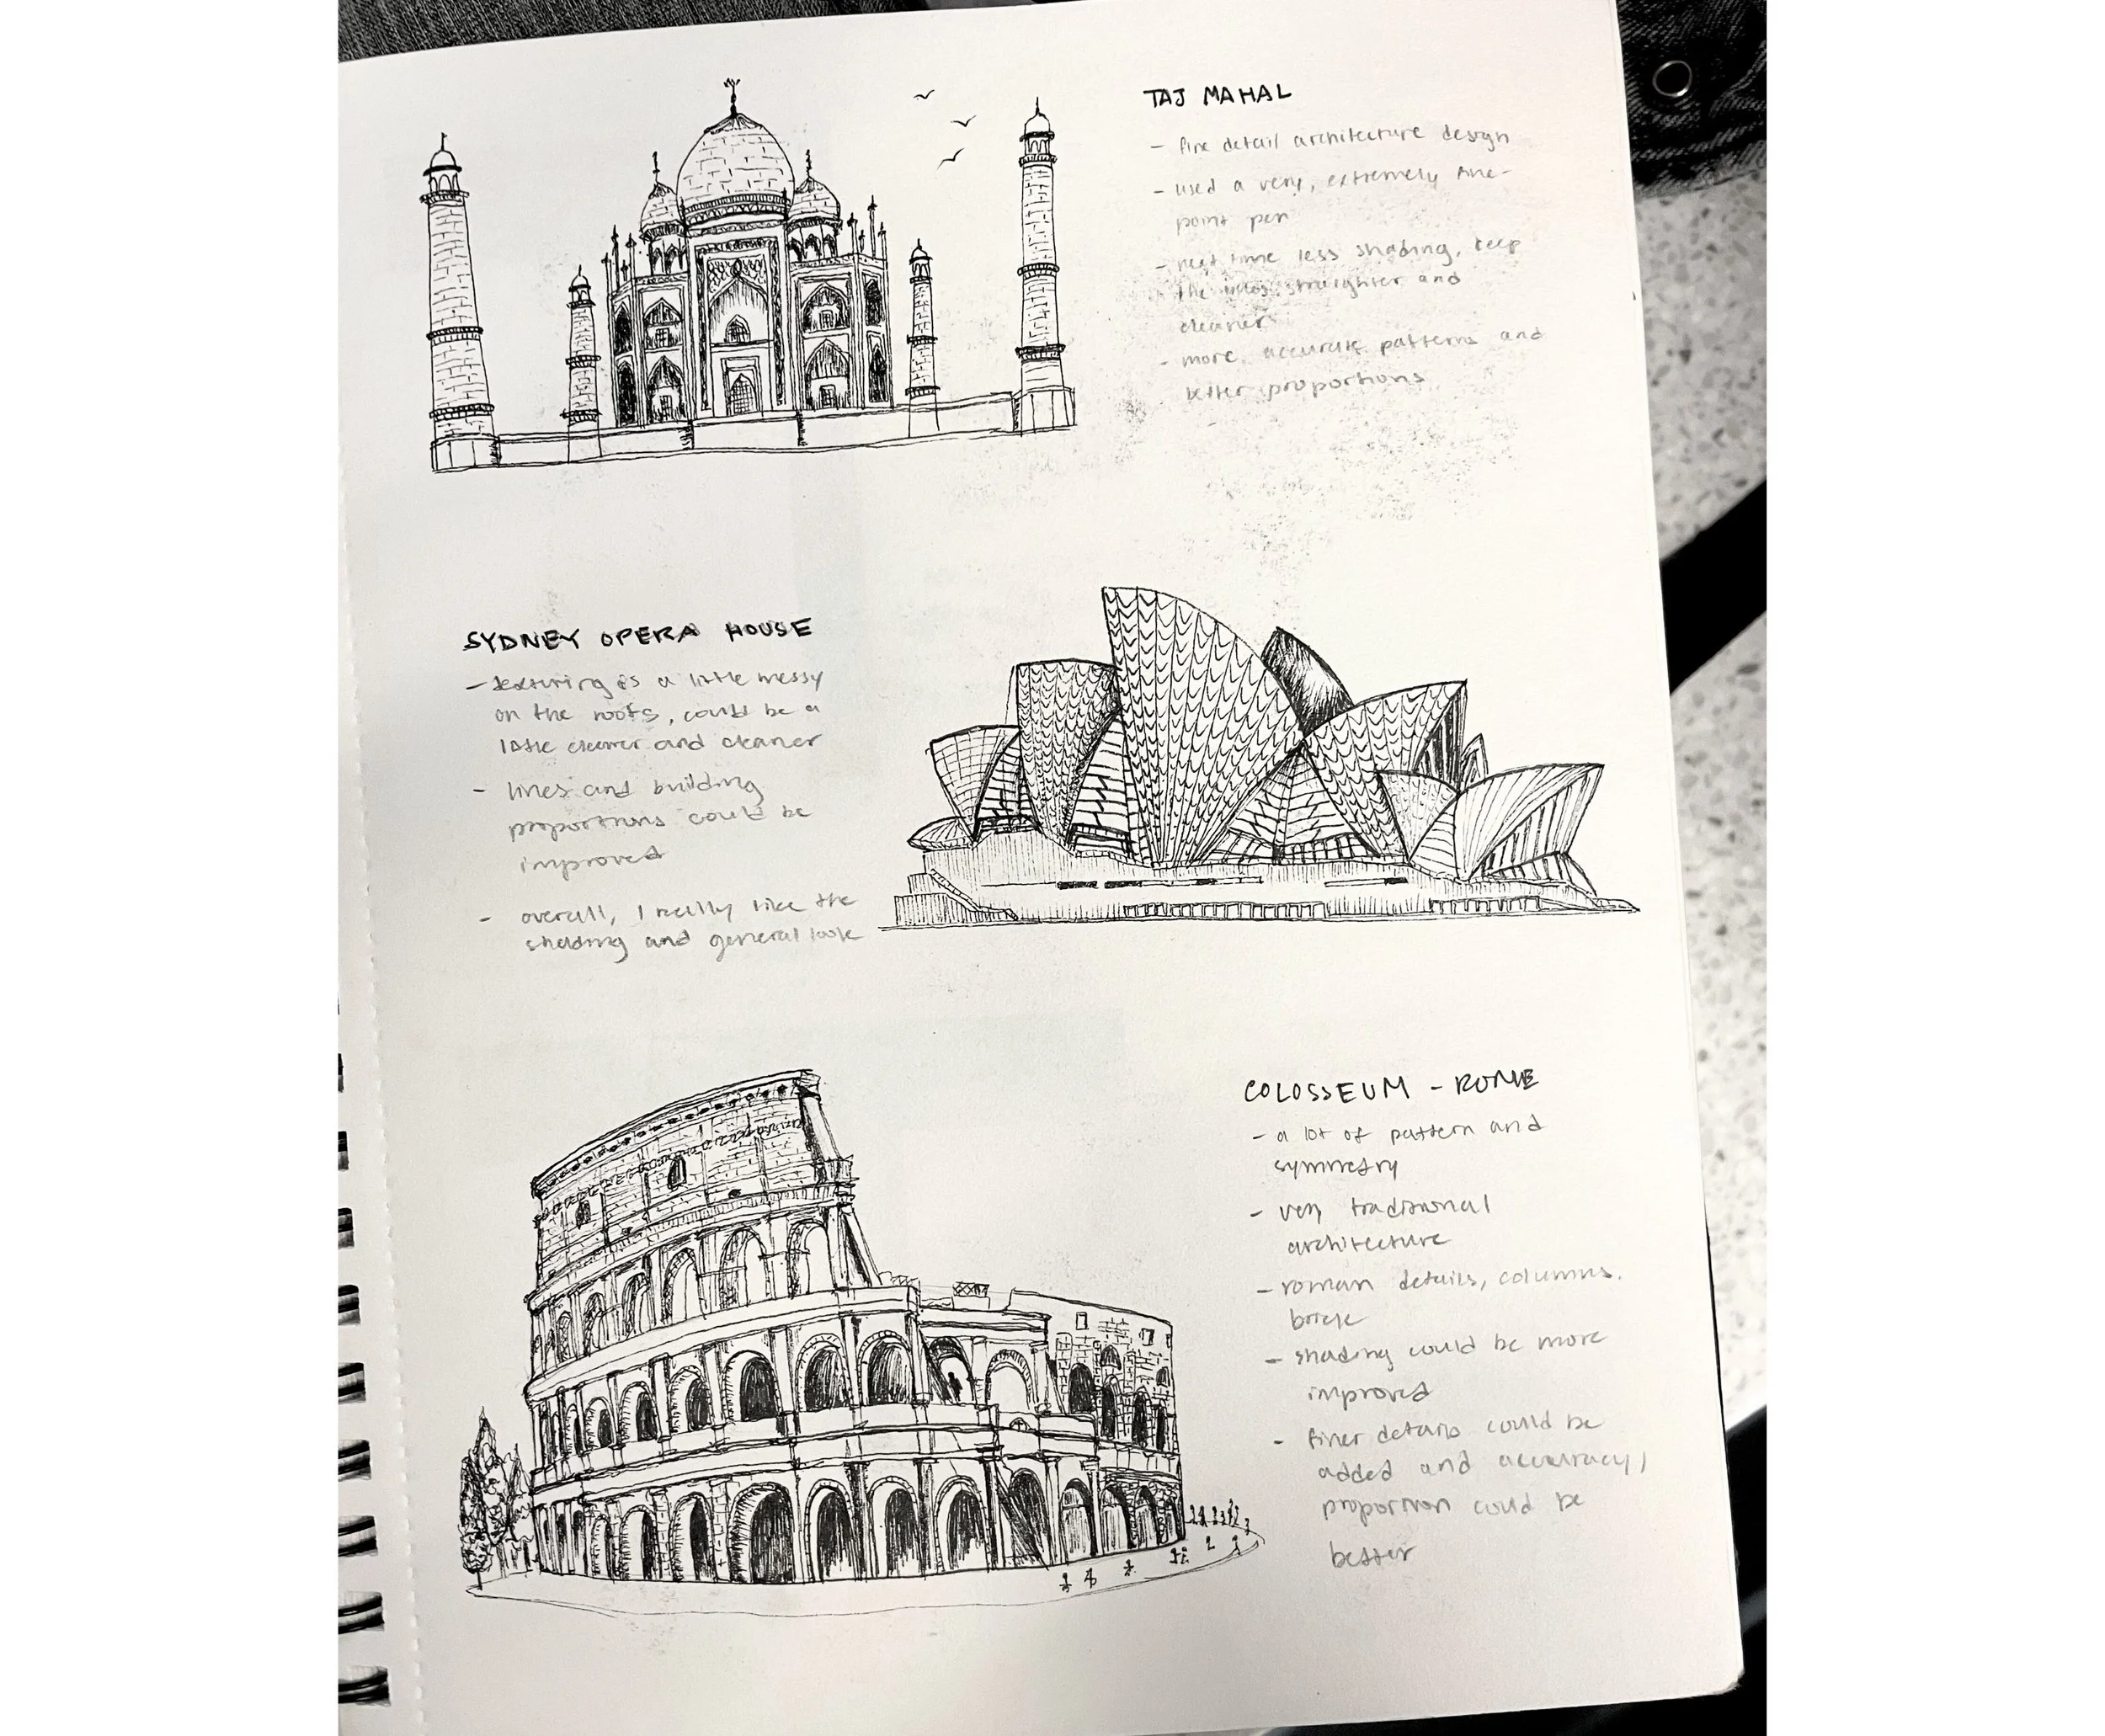 TAJ MAHAL
- fine detail architecture design
- used a very, extremely fine-
point pen
- next time less shading, keep
the lines straighter and
cleaner
- more accurate patterns and
better proportions
SYDNEY OPERA HOUSE
- texturing is a little messy
on the roofs, could be a
little cleaner and cleaner
- lines and building
proportions could be
improved
- overall, I really like the
shading and general look
COLOSSEUM - ROME
- a lot of pattern and
symmetry
- very traditional
architecture
- roman details, columns,
brick
- shading could be more
improved
- finer details could be
added and accuracy,
proportion could be
better